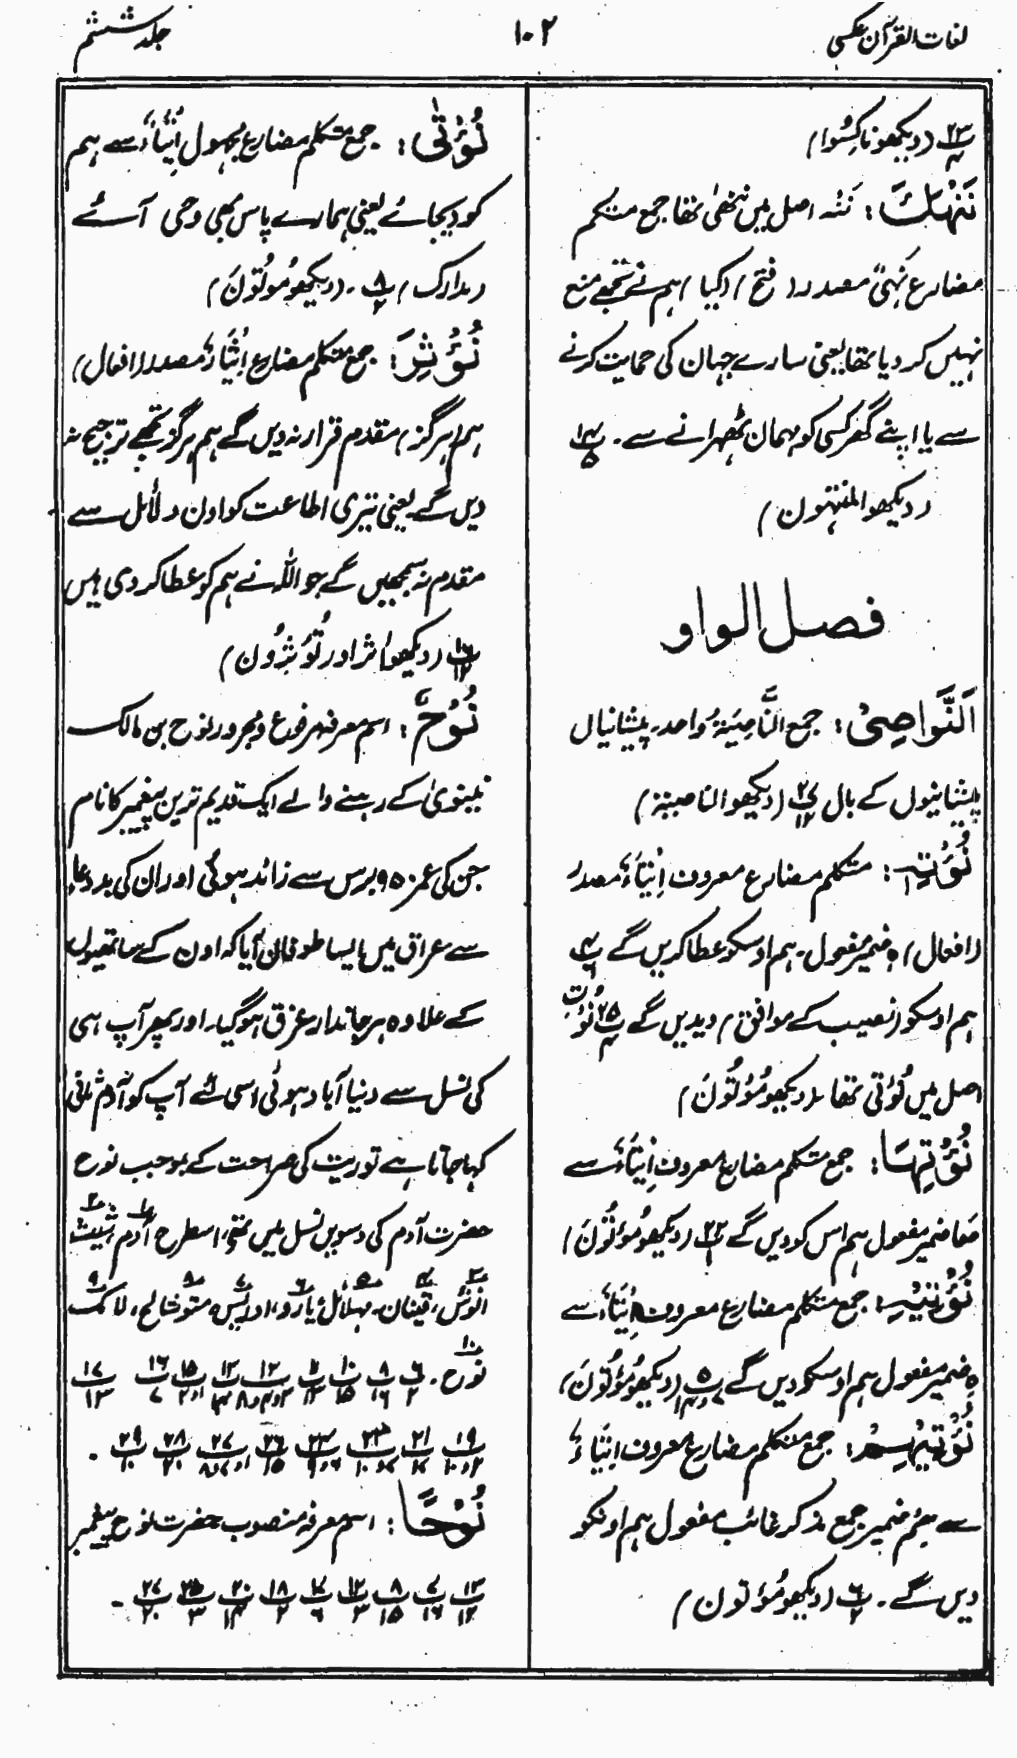 لغات القرآن عکسی
۱۰۲
جلد ششم
۲۳/۴ (دیکھو ناکِسُوا)
نَنْہَکَ: نَنْہَ اصل میں ننھٰی تھا جمع متکلم
مضارع نَہْیٌ مصدر (فتح) (کیا) ہم نے تجھے منع
نہیں کر دیا تھا یعنی سارے جہان کی حمایت کرنے
سے یا اپنے گھر کسی کو مہمان ٹھہرانے سے۔ ۱۴/۵
(دیکھو المنتہون)
فصل الواو
اَلنَّوَاصِیْ: جمع النَّاصِیَۃُ واحد۔ پیشانیاں
پیشانیوں کے بال ۲۷/۱۲ (دیکھو الناصیۃ)
نُؤْتِہٖ: متکلم مضارع معروف اِیْتَاءٌ مصدر
(افعال) ہٖ ضمیر مفعول۔ ہم اوسکو عطا کریں گے
ہم اوسکو (نصیب کے موافق) دیدیں گے ۲۵/۴ نُؤْتِ
اصل میں نُؤْتِی تھا۔ (دیکھو مُؤْتُوْنَ)
نُؤْتِہَا: جمع متکلم مضارع معروف اِیْتَاءٌ سے
ھَا ضمیر مفعول ہم اس کو دیں گے ۲۲/۱ (دیکھو مُؤْتُوْنَ)
نُؤْتِیْہِ: جمع متکلم مضارع معروف اِیْتَاءٌ سے
ہٖ ضمیر مفعول ہم اوسکو دیں گے (دیکھو مُؤْتُوْنَ)
نُؤْتِیْہِمْ: جمع متکلم مضارع معروف اِیْتَاءٌ
سے ہِمْ ضمیر جمع مذکر غائب مفعول ہم اونکو
دیں گے۔ ۶/۲ (دیکھو مُؤتون)
نُؤْتٰی: جمع متکلم مضارع مجہول اِیْتَاءٌ سے ہم
کو دیجائے یعنی ہمارے پاس بھی وحی آئے
(مدارک) ۸/۲۔ (دیکھو مُؤْتُوْنَ)
نُؤْثِرَ: جمع متکلم مضارع اِیْثَارٌ مصدر (افعال)
ہم (ہرگز) مقدم قرار نہ دیں گے ہم ہرگز تجھے ترجیح نہ
دیں گے یعنی تیری اطاعت کو اون دلائل سے
مقدم نہ سمجھیں گے جو اللہ نے ہم کو عطا کر دی ہیں
۱۶/۱۲ (دیکھو اٰثر اور تُؤْثِرُون)
نُوْحٌ: اسم معرفہ مرفوع و مجرور نوح بن مالک
نینویٰ کے رہنے والے ایک قدیم ترین پیغمبر کا نام
جن کی عمر ۹۵۰ برس سے زائد ہوئی اور ان کی بددعاء
سے عراق میں ایسا طوفان آیا کہ اون کے ساتھیوں
کے علاوہ ہر جاندار غرق ہوگیا۔ اور پھر آپ ہی
کی نسل سے دنیا آباد ہوئی اسی لئے آپ کو آدم ثانی
کہا جاتا ہے توریت کی صراحت کے بموجب نوح
حضرت آدم کی دسویں نسل میں تھے، اسطرح آدم۱، شیث۲
انوش۳، قینان۴، مہلائل۵ یارد۶، ادریس۷، متوشالح۸، لامک۹
نوح۱۰۔ ۶/۲ ۸/۱۶ ۱۰/۱۵ ۱۱/۱۴ ۱۲/۲و۳و۴و۸ ۱۳/۱۴ ۱۵/۲و۳ ۱۶/۷ ۱۷/۱۳
۱۹/۲و۱۰ ۲۱/۱۷ ۲۳/۷و۱۰ ۲۴/۶و۹ ۲۶/۱۵ ۲۷/۱و۷و۸ ۲۸/۲۰ ۲۹/۱۰۔
نُوْحًا: اسم معرفہ منصوب حضرت نوح پیغمبر
۱۲/۱۴ ۷/۱۶ ۸/۱۵ ۱۲/۳ ۱۷/۶ ۱۸/۲ ۲۰/۱۴ ۲۵/۳ ۲۷/۲۰۔